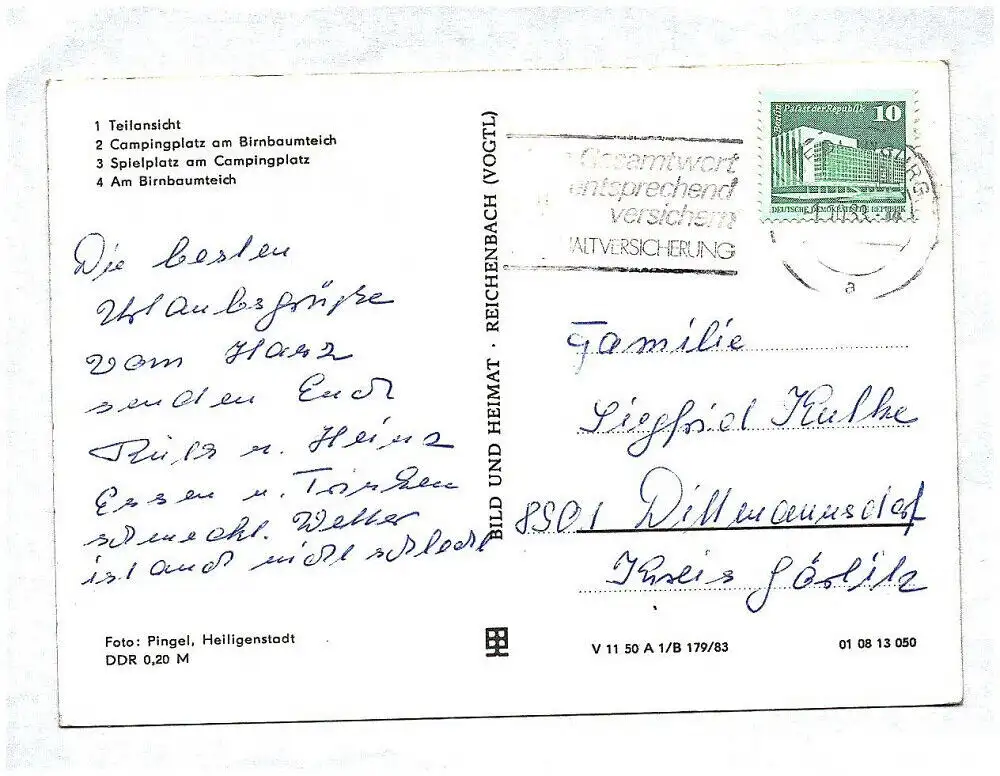 1 Teilansicht
2 Campingplatz am Birnbaumteich
3 Spielplatz am Campingplatz
4 Am Birnbaumteich
Die besten
Urlaubsgrüße
vom Harz
senden Euch
Ruth u. Heinz
Essen u. Trinken
schmeckt. Wetter
ist auch nicht schlecht
Foto: Pingel, Heiligenstadt
DDR 0,20 M
BILD UND HEIMAT · REICHENBACH (VOGTL)
Gesamtwert
entsprechend
versichern
Berlin Palast der Republik 10
DEUTSCHE DEMOKRATISCHE REPUBLIK
a
Familie
Siegfried Kulke
8901 Dittmannsdorf
Kreis Görlitz
V 11 50 A 1/B 179/83
01 08 13 050